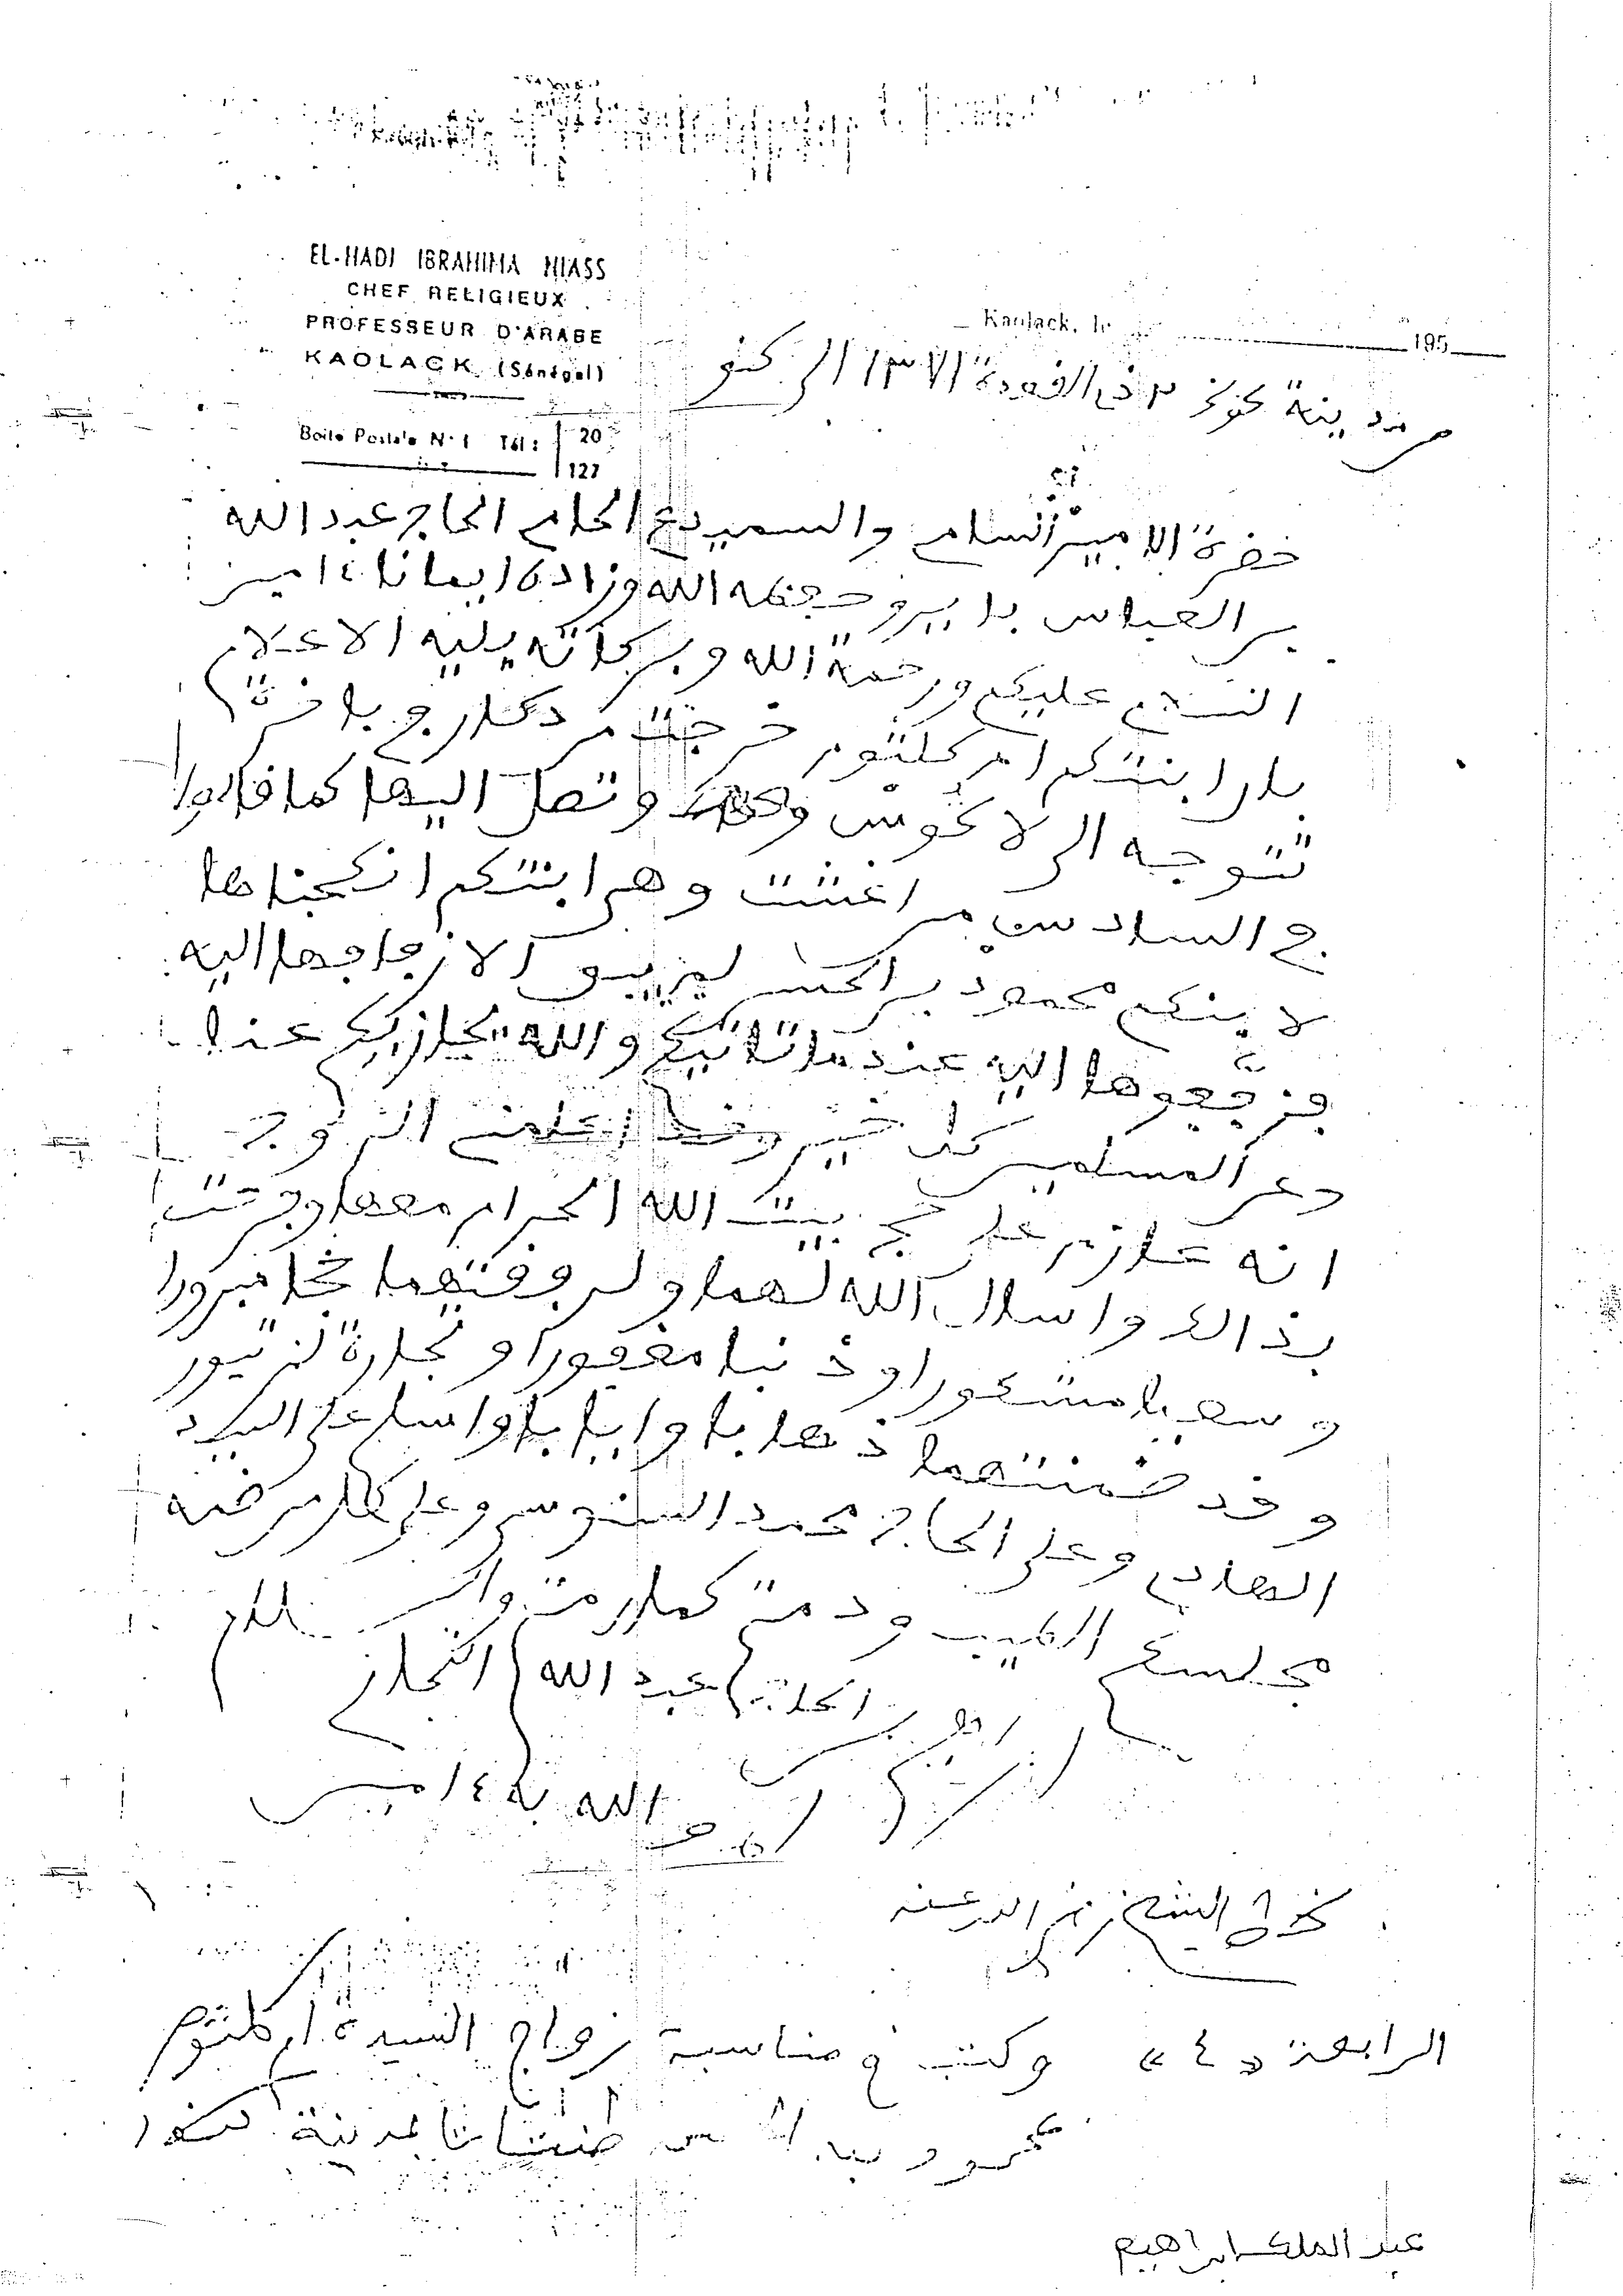 EL-HADJ IBRAHIMA NIASS
CHEF RELIGIEUX
PROFESSEUR D'ARABE
KAOLACK (Sénégal)
Boite Postale N° 1 Tél : 20
127
Kaolack, le 195
من مدينة كولخ ٣ ذى القعدة ١٣٧٦ الى كنو
حضرة الامير السام والسميدع الحام الحاج عبد الله
بن العباس بايرو حفظه الله وزاده ايمانا ءامين
السلام عليكم ورحمة الله وبركاته يليه الاعلام
بان ابنتكم ام كلثوم خرجت من دكار في باخرة
تتوجه الى لاكوس وتصل اليها كما قالوا
في السادس من اغشت وهي ابنتكم انكحناها
لابنكم محمود بن الحسن ليزيبق الا زفافها اليه
فزفعوها اليه عندما تاتيكم والله يجازيكم عنا
وعن المسلمين كل خير وقد اعلمنى الزوج
انه عازم على حج بيت الله الحرام معها وفرحت
بذالك واسال الله لهما ولرفقتهما حجا مبرورا
وسعيا مشكورا وذنبا مغفورا وتجارة لن تبور
وقد ضمنتهما ذهابا وايابا واسلم على السيد
الهادى وعلى الحاج محمد السنوسى وعلى كل من ضمه
مجلسك الطيب ودمت كما رمت والسلام
ابراهيم بن الحاج عبد الله التجانى
الله به ءامين
خط الشيخ رضى الله عنه
الرابعة «٤» وكتب في مناسبة زواج السيدة ام كلثوم
بمدينة كنو
عبد الملك ابراهيم